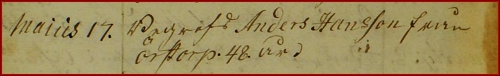 Maius 17. Begrofs Anders Hansson frau
örstorp. 48. år.